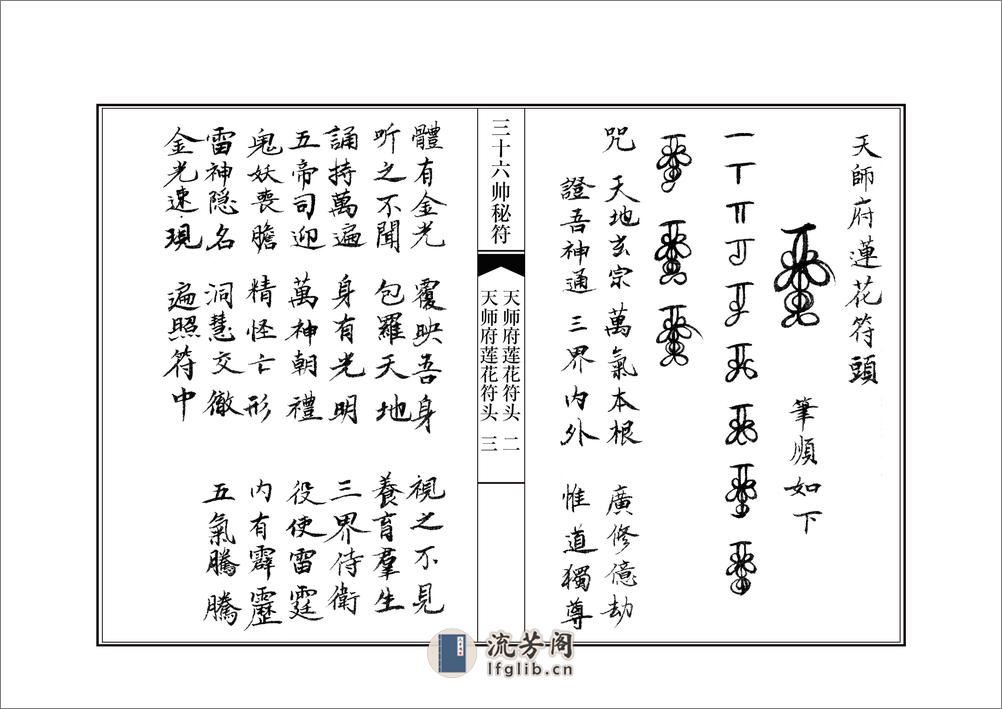 天師府蓮花符頭
筆順如下
咒 天地玄宗 萬氣本根 廣修億劫
證吾神通 三界內外 惟道獨尊
三十六帅秘符
天师府莲花符头 二
天师府莲花符头 三
體有金光 覆映吾身 視之不見
听之不聞 包羅天地 養育羣生
誦持萬遍 身有光明 三界侍衛
五帝司迎 萬神朝禮 役使雷霆
鬼妖喪膽 精怪亡形 内有霹靂
雷神隐名 洞慧交徹 五氣騰騰
金光速現 遍照符中
流芳阁
lfglib.cn